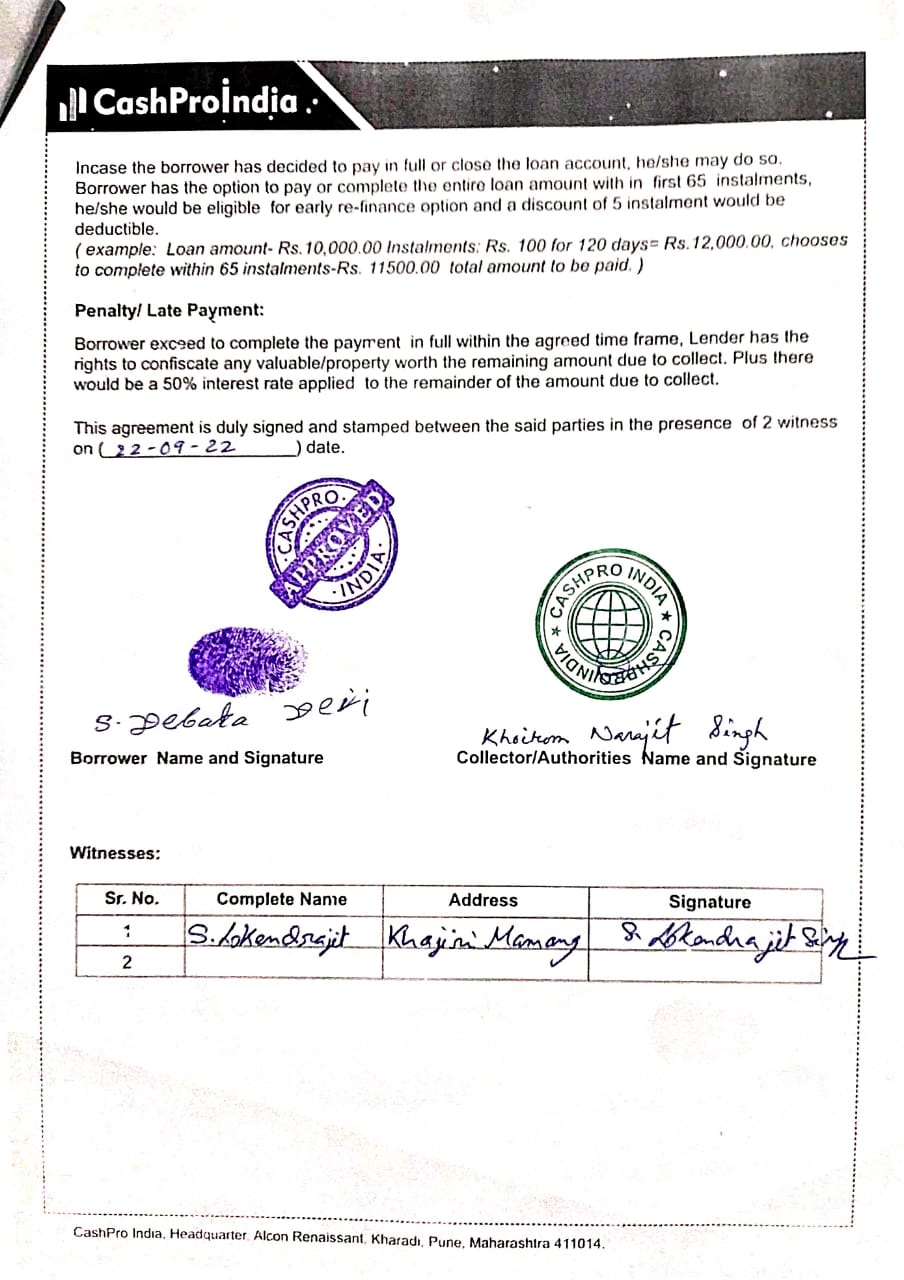 CashProIndia
Incase the borrower has decided to pay in full or close the loan account, he/she may do so.
Borrower has the option to pay or complete the entire loan amount with in first 65 instalments,
he/she would be eligible for early re-finance option and a discount of 5 instalment would be
deductible.
( example: Loan amount- Rs.10,000.00 Instalments: Rs. 100 for 120 days= Rs.12,000.00, chooses
to complete within 65 instalments-Rs. 11500.00 total amount to be paid. )
Penalty/ Late Payment:
Borrower exceed to complete the payment in full within the agreed time frame, Lender has the
rights to confiscate any valuable/property worth the remaining amount due to collect. Plus there
would be a 50% interest rate applied to the remainder of the amount due to collect.
This agreement is duly signed and stamped between the said parties in the presence of 2 witness
on ( 22-09-22 ) date.
CASHPRO INDIA
APPROVED
CASHPRO INDIA ★ CASHPRO INDIA ★
S. Debata Devi
Khoirom Narajit Singh
Borrower Name and Signature Collector/Authorities Name and Signature
Witnesses:
Sr. No. Complete Name Address Signature
1 S. Lokendrajit Khajiri Mamang S. Lokendrajit Singh
2
CashPro India, Headquarter, Alcon Renaissant, Kharadi, Pune, Maharashtra 411014.